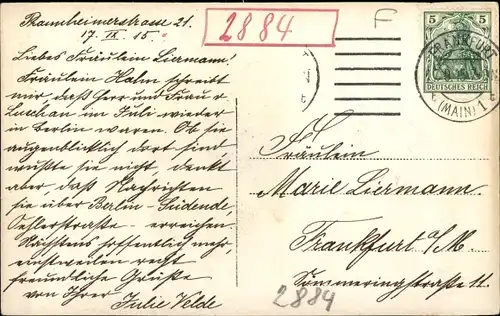 Bornheimerstrasse 21.
17. IX. 15.
Liebes Fräulein Liermann!
Fräulein Hahn schreibt
mir, daß Herr und Frau v.
Luschan im Juli wieder
in Berlin waren. Ob sie
augenblicklich dort sind
wüßte sie nicht, denkt
aber, daß Nachrichten
sie über Berlin-Südende,
Oehlerstraße - erreichen.
Nächstens hoffentlich mehr,
einstweilen recht
freundliche Grüße
von Ihrer
Julie Velde
2884
F
5 5
DEUTSCHES REICH
FRANKFURT
(MAIN) 1
Fräulein
Marie Liermann
Frankfurt a/M.
Sömmeringstraße 11.
2884